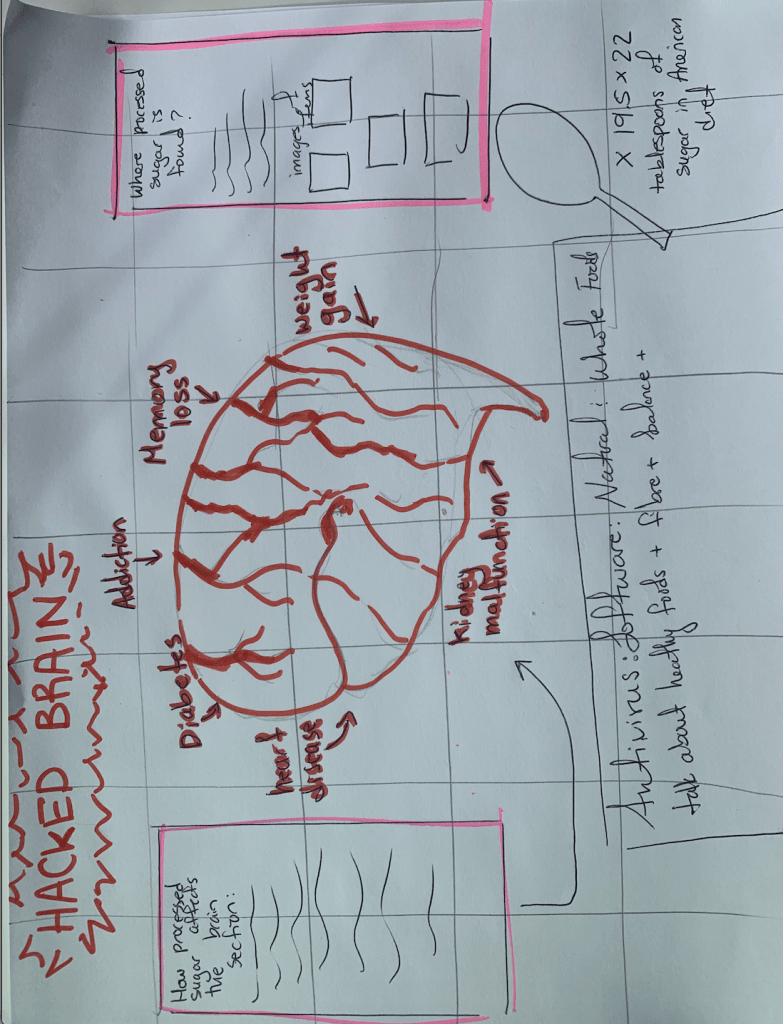 HACKED BRAIN
How processed
sugar affects
the brain
section:
Diabetes
Addiction
Memory
loss
weight
gain
heart
disease
Kidney
malfunction
Where processed
sugar is
found?
images of
items
x 19.5 x 22
tablespoons of
sugar in American
diet
Antivirus: Software: Natural: Whole Foods
talk about healthy foods + fibre + balance +